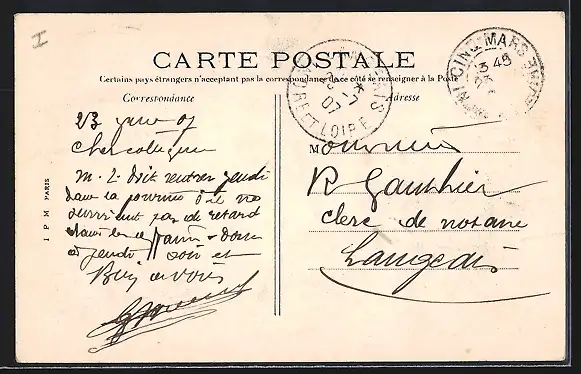 I
CARTE POSTALE
Certains pays étrangers n'acceptant pas la correspondance de ce côté se renseigner à la Poste
Correspondance
Adresse
CINQ-MARS
3 45
07
LOIRE
23 janv 07
Cher collègue
M. L. doit rentrer jeudi
dans la journée s'il ne
survient pas de retard
dans le
à jeudi soir et
Bien à vous
Monsieur
R Gauthier
clerc de notaire
Langeais
I P M PARIS